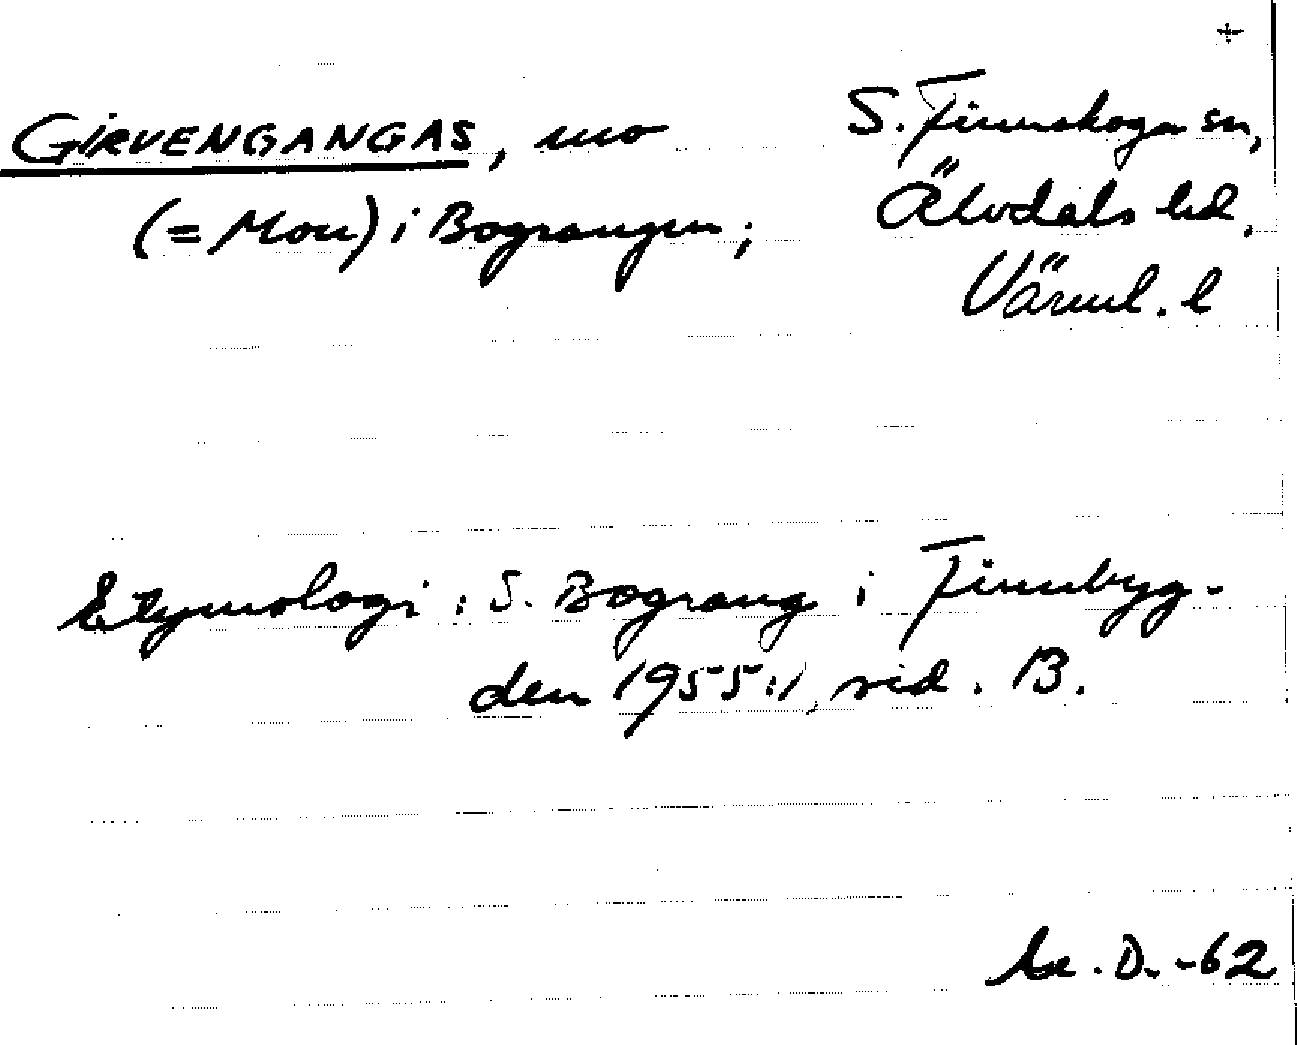 +
GIRVENGANGAS, mo
S. Finnskoga sn,
(= Mon) i Bograngen;
Älvdals hd,
Värml. l
Etymologi: S. Bograng i Finnbyg-
den 1955:1, sid. 13.
D. -62